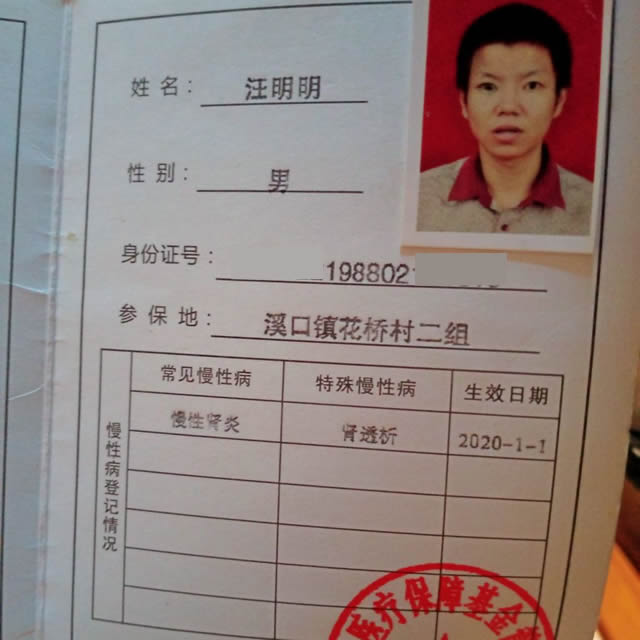 姓 名： 汪明明
性 别： 男
身份证号： 198802
参 保 地： 溪口镇花桥村二组
慢性病登记情况
常见慢性病 特殊慢性病 生效日期
慢性肾炎 肾透析 2020-1-1
医疗保障基金